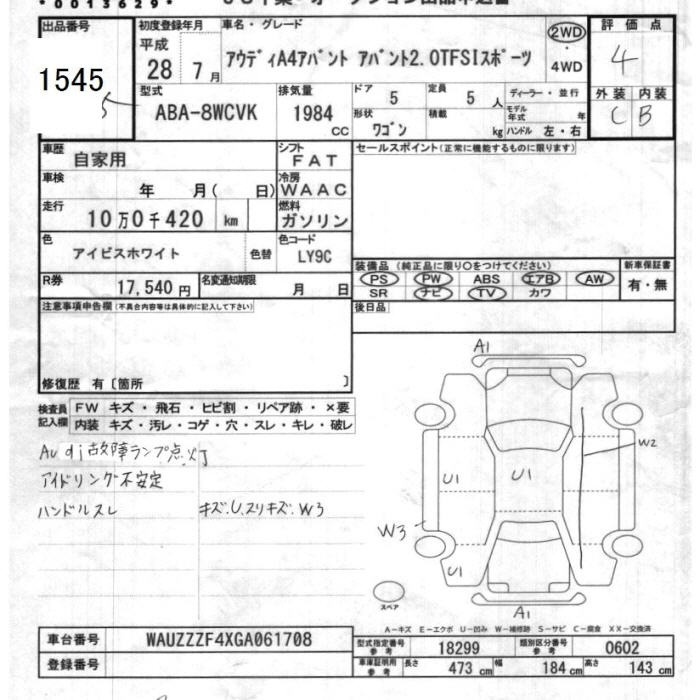 *0013629*
出品番号
1545
初度登録年月
平成
28年 7月
車名・グレード
アウディA4アバント アバント2.0TFSIスポーツ
2WD
・
4WD
評価点
4
外装 内装
C B
型式
ABA-8WCVK
排気量
1984
CC
ドア 5
定員 5 人
形状 ワゴン
積載 kg
ディーラー・並行
モデル年式 年
ハンドル 左・右
車歴
自家用
シフト
FAT
車検
年 月( 日)
冷房
WAAC
走行
10万0千420 km
燃料
ガソリン
色
アイビスホワイト
色替
色コード
LY9C
R券
17,540円
名変通知期限
月 日
セールスポイント(正常に機能するものに限ります)
装備品 (純正品に限り○をつけてください)
PS PW ABS エアB AW
SR ナビ TV カワ
新車保証書
有・無
後日品
注意事項申告欄(不具合内容等は具体的に記入して下さい)
修復歴 有〔箇所 〕
検査員記入欄
FW キズ・飛石・ヒビ割・リペア跡・×要
内装 キズ・汚レ・コゲ・穴・スレ・キレ・破レ
Audi故障ランプ点灯
アイドリング不安定
ハンドルスレ
キズ.U.スリキズ.W3
A1
W2
U1
U1
W3
U1
スペア
A1
A－キズ E－エクボ U－凹み W－補修跡 S－サビ C－腐食 XX－交換済
車台番号
WAUZZZF4XGA061708
登録番号
型式指定番号 参考
18299
類別区分番号 参考
0602
車庫証明用 参考
長さ 473 cm
幅 184 cm
高さ 143 cm